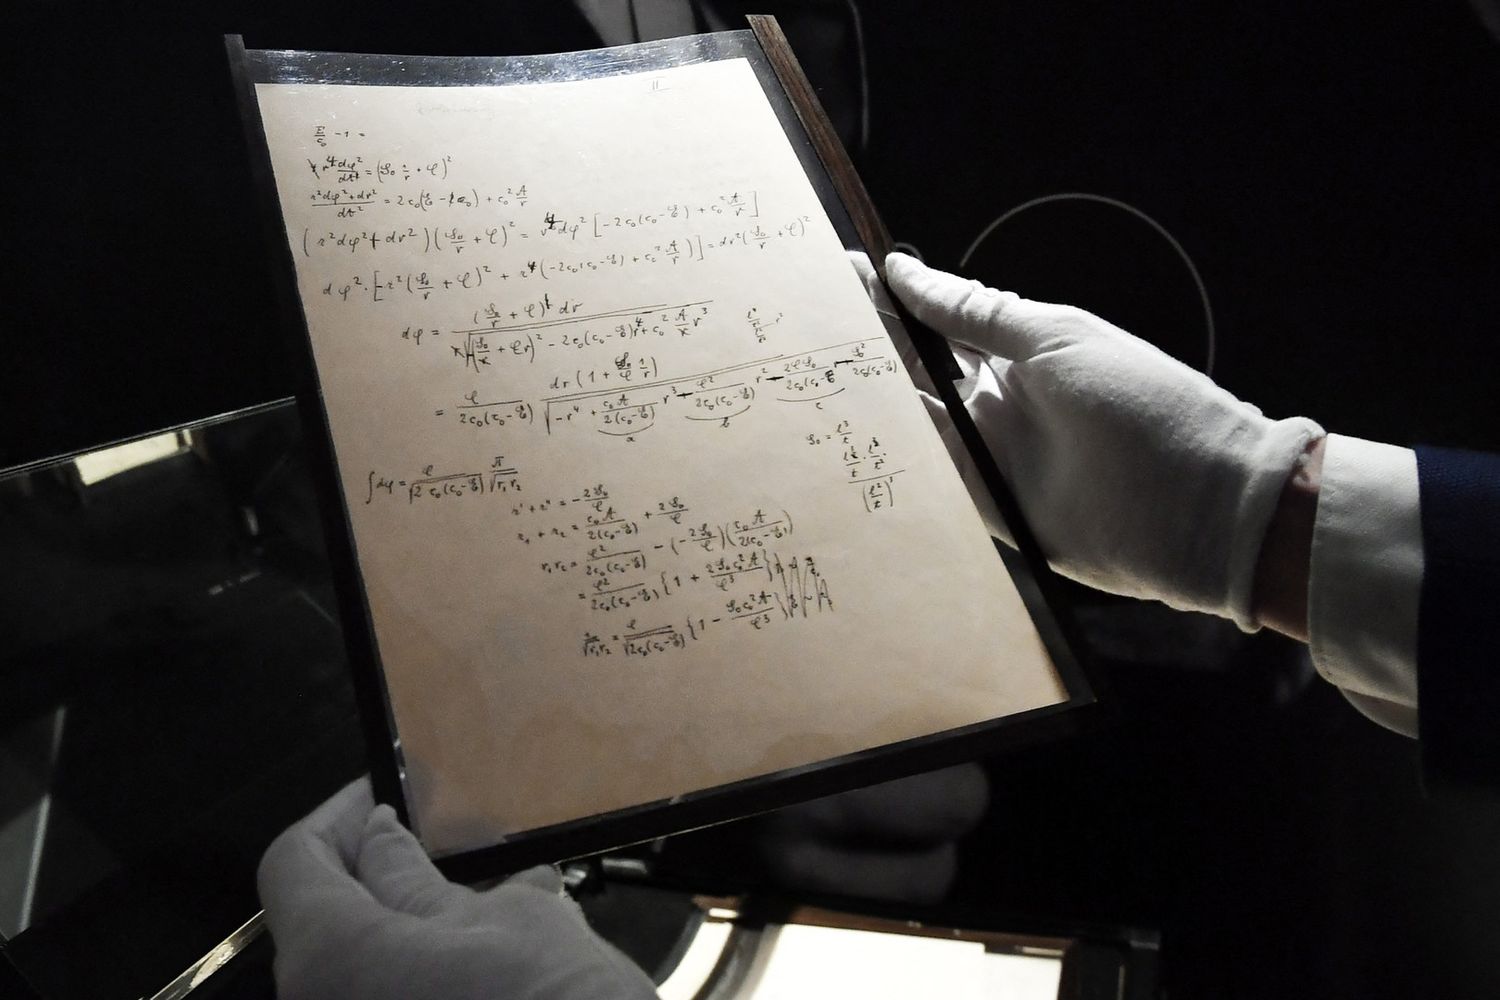 II
E/c₀ - 1 =
r⁴ dφ²/dt² = (S₀ 1/r + φ)²
(r²dφ² + dr²)/dt² = 2c₀( - ) + c₀² A/r
(r²dφ² + dr²)(S₀/r + φ)² = r⁴dφ² [-2c₀(c₀ - E) + c₀² A/r]
dφ² · [-r²(S₀/r + φ)² + r⁴(-2c₀(c₀ - E) + c₀² A/r)] = dr²(S₀/r + φ)²
dφ = (S₀/r + φ) dr / √(-(S₀ + φr)² - 2c₀(c₀ - E)r⁴ + c₀² A r³)
= φ/(2c₀(c₀ - E)) dr(1 + S₀/φ 1/r) / √(-r⁴ + c₀A/(2(c₀ - E)) r³ - φ²/(2c₀(c₀ - E)) r² - 2φS₀/(2c₀(c₀ - E)) r - S₀²/(2c₀(c₀ - E)))
a b c
S₀ = l³/t
l³/t · l³/t² / (l²/t)³
∫dφ = φ/√(2c₀(c₀ - E)) π/√(r₁r₂)
r' + r'' = - 2S₀/φ
r₁ + r₂ = c₀A/(2(c₀ - E)) + 2S₀/φ
r₁r₂ = φ²/(2c₀(c₀ - E)) - (- 2S₀/φ)(c₀A/(2(c₀ - E)))
= φ²/(2c₀(c₀ - E)) {1 + 2S₀c₀²A/φ³}
√(r₁r₂) = φ/√(2c₀(c₀ - E)) {1 - S₀c₀²A/φ³}